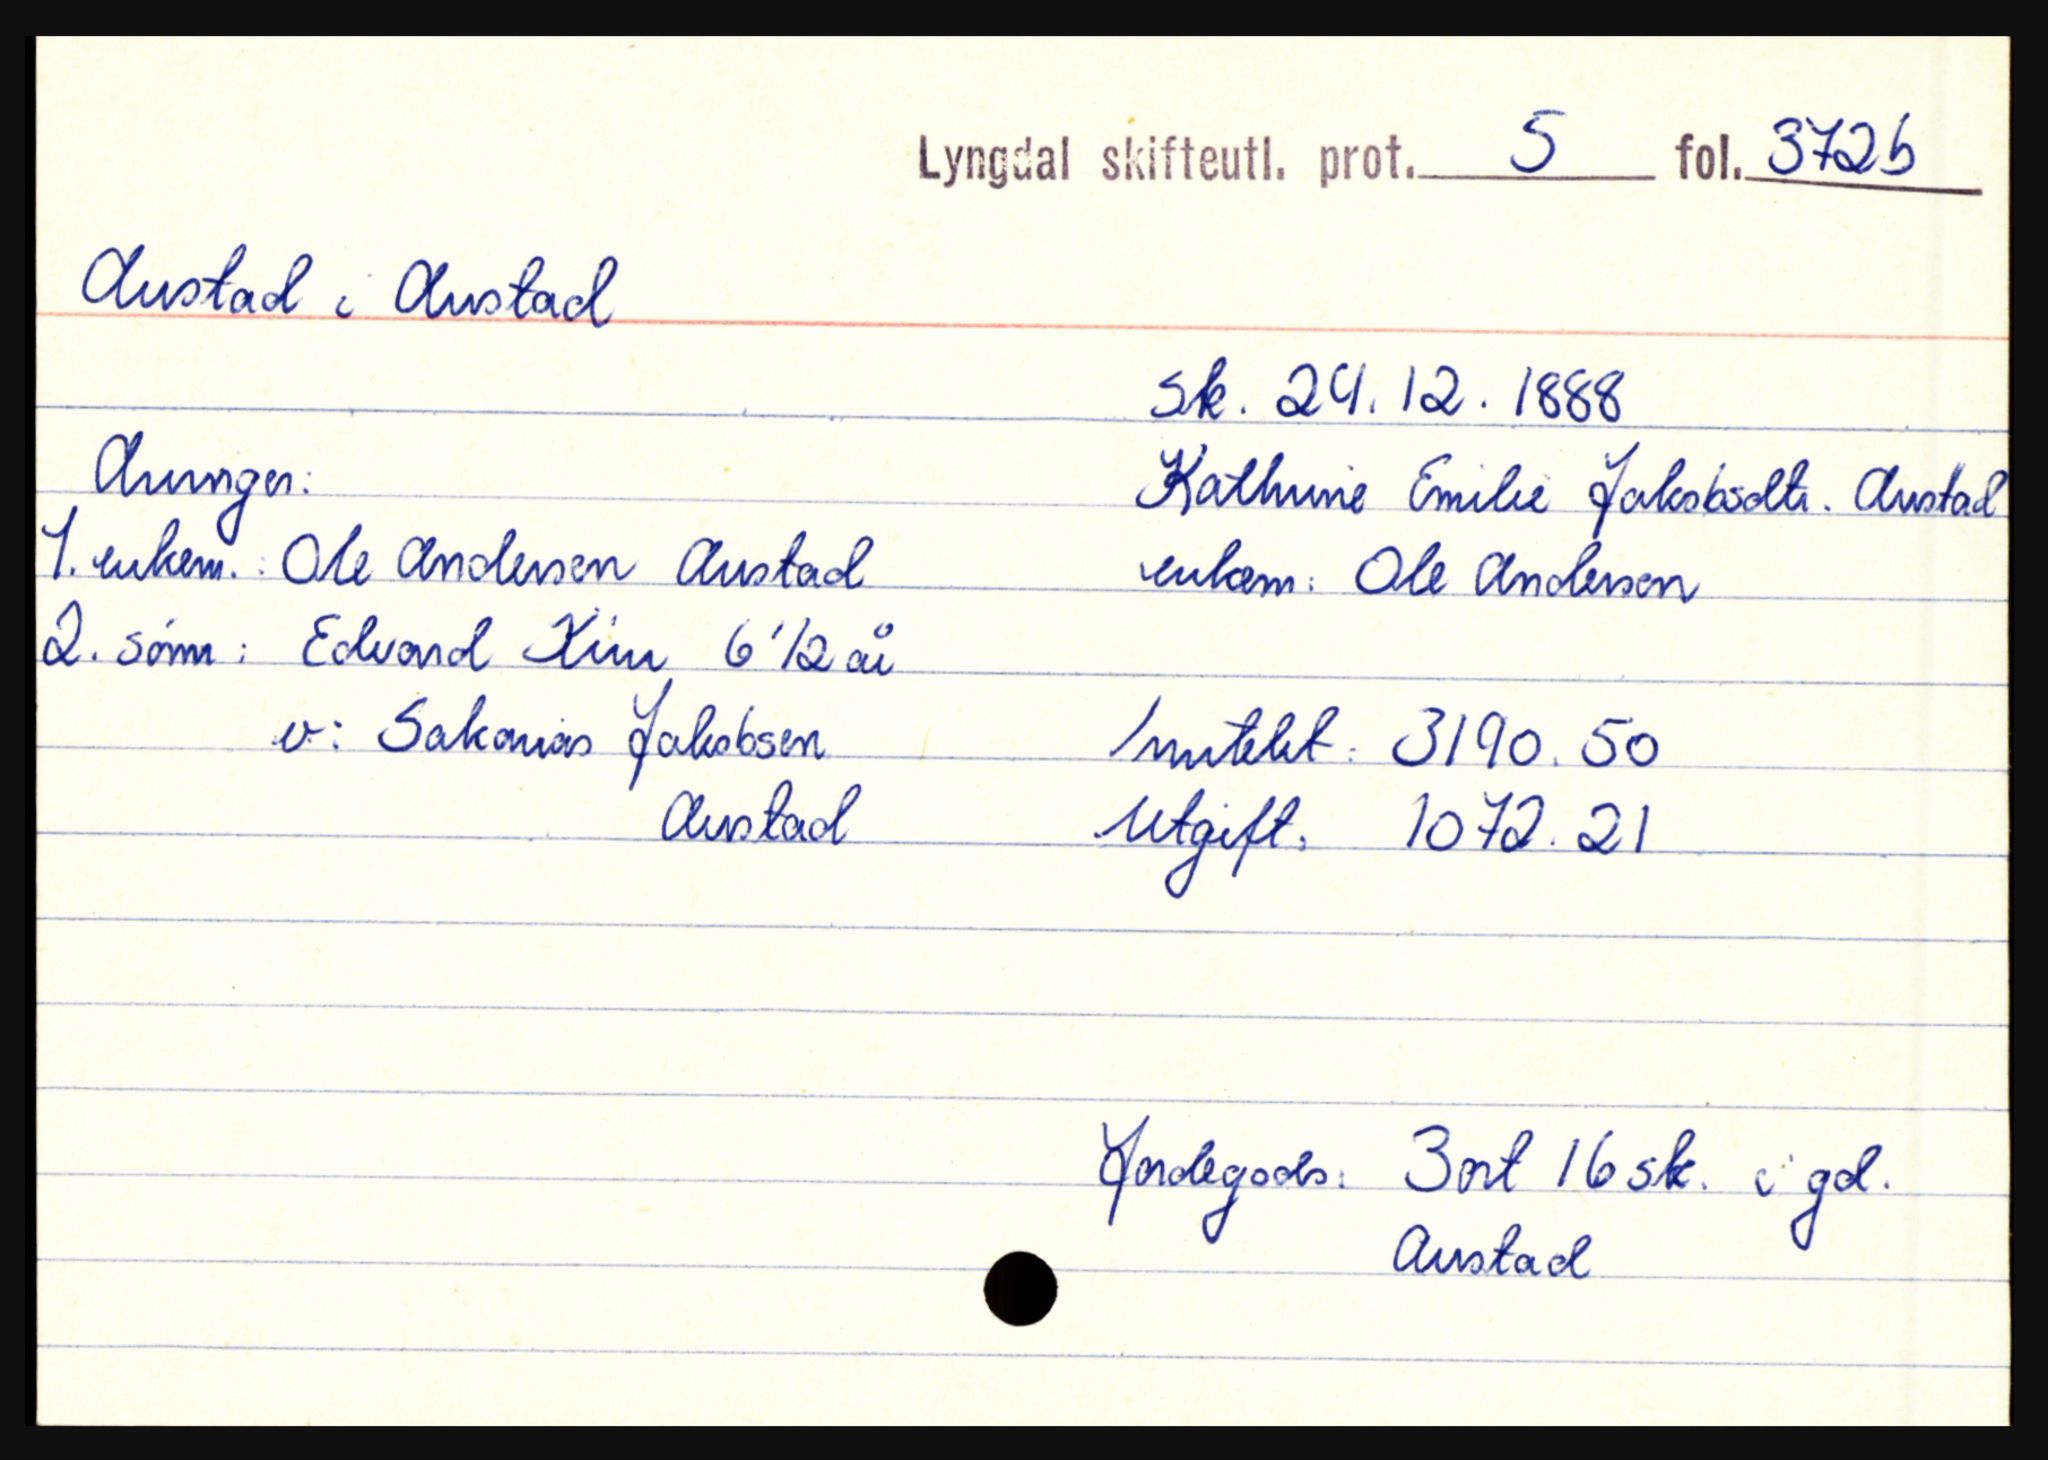 Lyngdal skifteutl. prot. 5 fol. 372b
Austad i Austad
sk. 24.12.1888
Kathrine Emilie Jakobsdtr. Austad
enkem: Ole Andersen
Arvinger:
1. enkem.: Ole Andersen Austad
2. sønn: Edvard Kim 6 1/2 år
v: Sakarias Jakobsen
Austad
Inntekt: 3190.50
Utgift: 1072.21
Jordegods: 3 ort 16 sk. i gd.
Austad